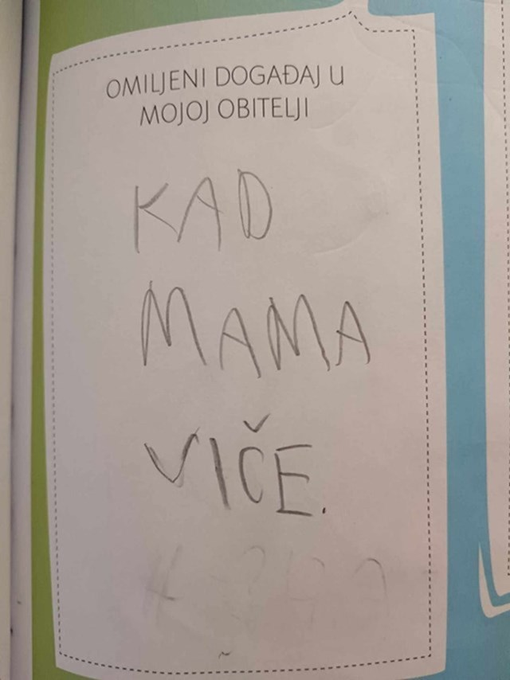 OMILJENI DOGAĐAJ U
MOJOJ OBITELJI
KAD
MAMA
VIČE.